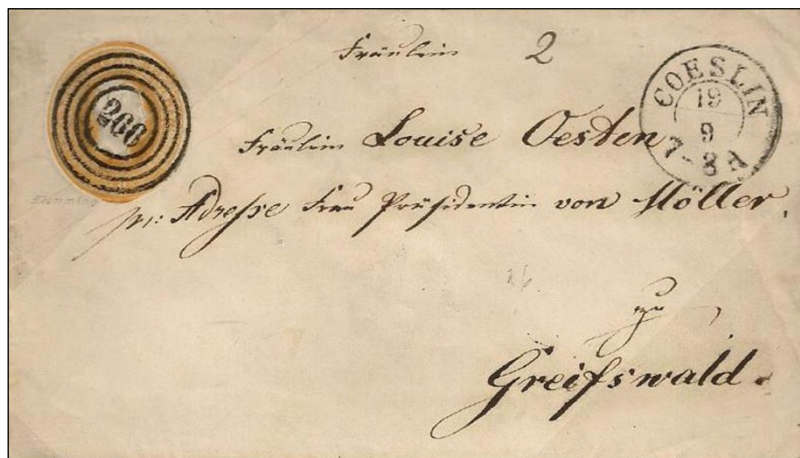 Fräulein 2
266
COESLIN
19
9
7-8 A
Fräulein Louise Oesten
pr: Adresse Frau Präsidentin von Möller.
zu
Greifswald.